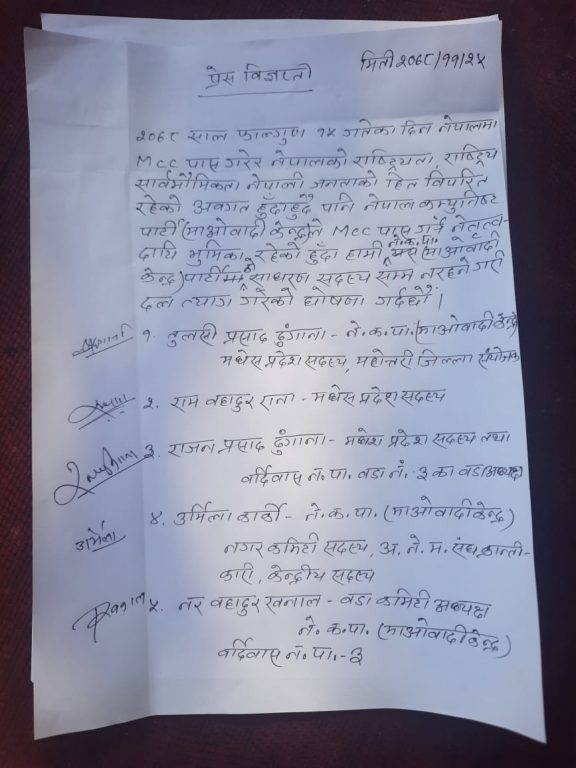 प्रेस विज्ञप्ती
मिती २०७८/११/२५
२०७८ साल फाल्गुण १५ गतेका दिन नेपालमा
Mcc पास गरेर नेपालको राष्ट्रियता, राष्ट्रिय
सार्वभौमिकता नेपाली जनताको हित विपरित
रहेको अवगत हुँदाहुदै पनि नेपाल कम्युनिष्ट
पार्टी (माओवादी केन्द्र)ले Mcc पास गर्न नेतृत्व-
दायि भूमिका रहेको हुँदा हामी ने.क.पा. (माओवादी
केन्द्र) पार्टीमा साधारण सदस्य सम्म नरहने गरी
दल त्याग गरेको घोषणा गर्दछौं।
१. तुलसी प्रसाद ढुंगाना - ने.क.पा. (माओवादी केन्द्र)
मधेस प्रदेश सदस्य, महोत्तरी जिल्ला संयोजक
२. राम वहादुर राना - मधेस प्रदेश सदस्य
३. राजन प्रसाद ढुंगाना - मधेश प्रदेश सदस्य तथा
वर्दिवास न.पा. वडा नं. ३ का वडा अध्यक्ष
४. उर्मिला कार्की - ने.क.पा. (माओवादी केन्द्र)
उर्मिला
नगर कमिटी सदस्य, अ.ने.म. संघ, क्रान्ती-
कारी, केन्द्रीय सदस्य
५. नर वहादुर खनाल - वडा कमिटी अध्यक्ष
ने.क.पा. (माओवादी केन्द्र)
वर्दिवास न.पा.-३